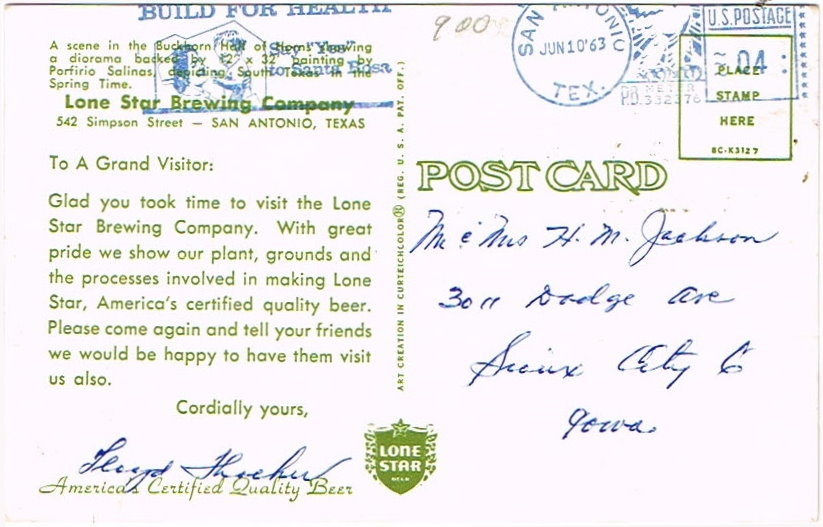 BUILD FOR HEALTH
Say "Yes"
to Santa Rosa
900
SAN ANTONIO
JUN 10'63
TEX.
U.S. POSTAGE
.04
PB METER
332376
A scene in the Buckhorn Hall of Horns showing
a diorama backed by 12' x 32' painting by
Porfirio Salinas, depicting South Texas in the
Spring Time.
Lone Star Brewing Company
542 Simpson Street — SAN ANTONIO, TEXAS
PLACE
STAMP
HERE
BC-K3127
To A Grand Visitor:
Glad you took time to visit the Lone
Star Brewing Company. With great
pride we show our plant, grounds and
the processes involved in making Lone
Star, America's certified quality beer.
Please come again and tell your friends
we would be happy to have them visit
us also.
Cordially yours,
Floyd
America's Certified Quality Beer
ART CREATION IN CURTEICHCOLOR® (REG. U. S. A. PAT. OFF.)
LONE
STAR
BEER
POST CARD
Mr & Mrs H. M. Jackson
3011 Dodge Ave
Sioux City 6
Iowa